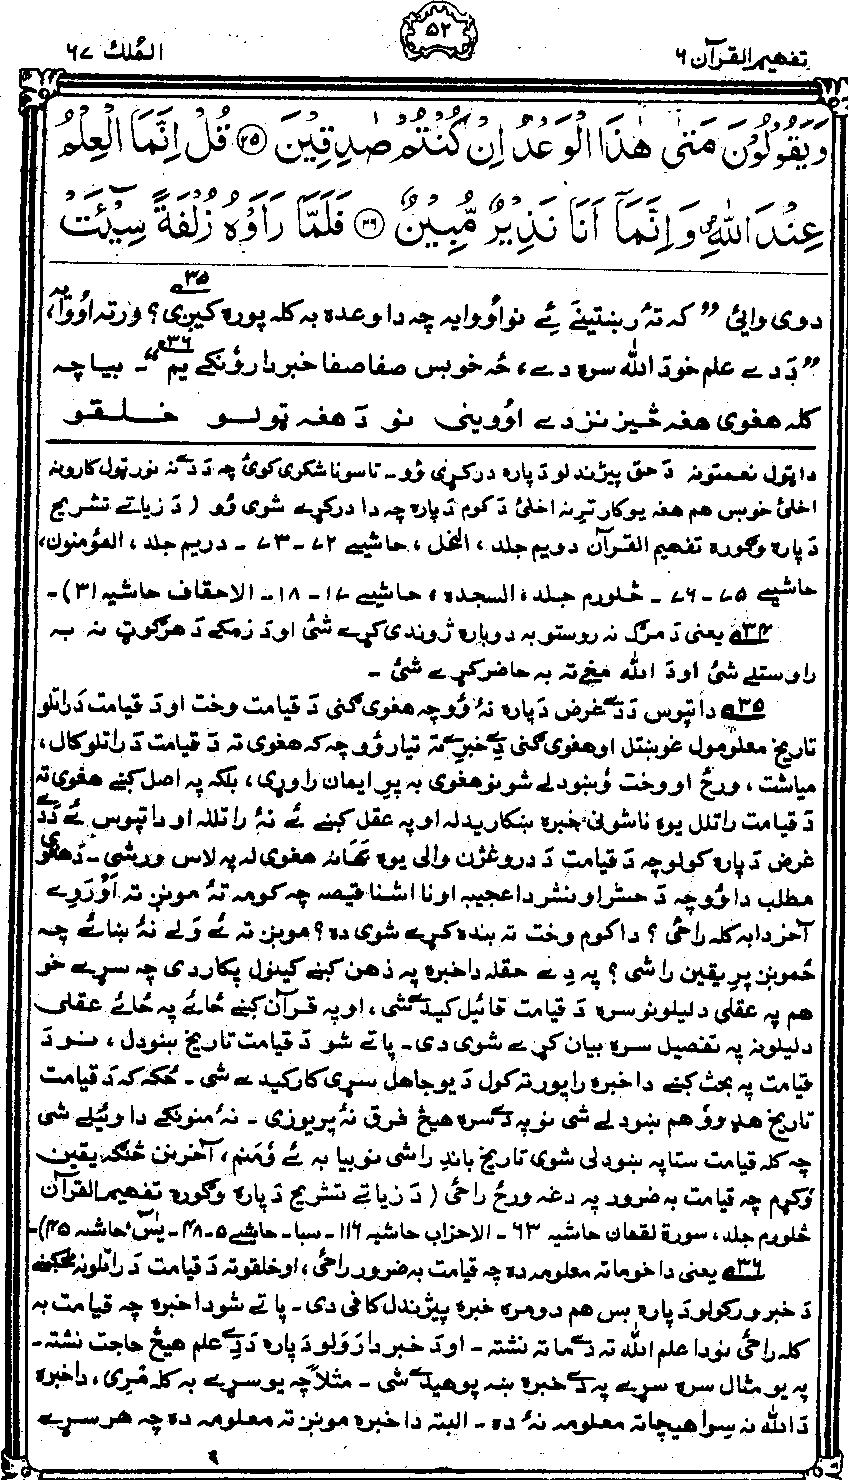 تفهیم القرآن ۶
۵۲
المُلك ۶۷
وَيَقُوْلُوْنَ مَتٰى هٰذَا الْوَعْدُ اِنْ كُنْتُمْ صٰدِقِيْنَ ۲۵ قُلْ اِنَّمَا الْعِلْمُ
عِنْدَ اللّٰهِ وَ اِنَّمَآ اَنَا نَذِيْرٌ مُّبِيْنٌ ۲۶ فَلَمَّا رَاَوْهُ زُلْفَةً سِيْٓئَتْ
دوی وائی " که تۀ رښتینے ئے نو اُووایه چه دا وعده به کله پوره کیږی؟ ۳۵ ورته اُووایه،
" دَ دے علم خو دَ الله سره دے، څه خو بس صفا صفا خبردار وُنکے یم" ۳۶ ۔ بیا چه
کله هغوی هغه څیز نزدے اُووینی نو دَ هغه ټولو خلقو
دا ټول نعمتونه دَ حق پیژندلو دَ پاره درکړی وُو ۔ تاسو ناشکری کوئ چه دَ دے نه نور ټول کارونه
اخلئ خو بس هم هغه یو کار ترینه اخلئ دَ کوم دَ پاره چه دا درکړے شوی وُو ( دَ زیاتے تشریح
دَ پاره وګوره تفهیم القرآن دویم جلد ، النحل ، حاشیے ۷۲ - ۷۳ ۔ دریم جلد ، المؤمنون،
حاشیے ۷۵ - ۷۶ ۔ څلورم جلد، السجده ، حاشیے ۱۷ - ۱۸ ۔ الاحقاف حاشیه ۳۱) ۔
۳۴ یعنی دَ مرګ نه روستو به دوباره ژوندی کړے شئ او دَ زمکے دَ هر ګوټ نه به
راوستلے شئ او دَ الله مخے ته به حاضر کړے شئ ۔
۳۵ دا تپوس دَ دے غرض دَ پاره نۀ وُو چه هغوی ګنی دَ قیامت وخت او دَ قیامت دَ راتلو
تاریخ معلومول غوښتل او هغوی ګنی دے خبرے ته تیار وُو چه که هغوی ته دَ قیامت دَ راتلو کال ،
میاشت ، ورځ او وخت وُښودلے شو نو هغوی به پرے ایمان راوړی ، بلکه په اصل کښے هغوی ته
دَ قیامت راتلل یوه ناشونی خبره ښکاریدله او په عقل کښے ئے نۀ راتلله او دا تپوس ئے دَ دے
غرض دَ پاره کولو چه دَ قیامت دَ دروغژن والی یوه بَهانه هغوی له په لاس ورشی ۔ دَ هغوی
مطلب دا وُو چه دَ حشر او نشر دا عجیبه او نا اشنا قیصه چه کومه تۀ مونږ ته اَوروے
آخر دا به کله راځی ؟ دا کوم وخت ته بنده کړے شوی ده؟ مونږ ته ئے وَلے نۀ ښائے چه
ځمونږ پرے یقین راشی ؟ په دے حقله دا خبره په ذهن کښے کینول پکار دی چه سړے خو
هم په عقلی دلیلونو سره دَ قیامت قائیل کیدے شی ، او په قرآن کښے ځائے په ځائے عقلی
دلیلونه په تفصیل سره بیان کړے شوی دی ۔ پاتے شو دَ قیامت تاریخ ښودل ، نو دَ
قیامت په بحث کښے دا خبره راپورته کول دَ یو جاهل سړی کار کیدے شی ۔ ځکه که دَ قیامت
تاریخ هډو وُو هم ښودلے شی نو په دے سره هیڅ فرق نۀ پریوزی ۔ نۀ منونکے دا وئیلے شی
چه کله قیامت ستا په ښودلی شوی تاریخ باندے راشی نو بیا به ئے وُمنم ، آخر نن څنګه یقین
وُکړم چه قیامت به ضرور په دغه ورځ راځی ( دَ زیاتے تشریح دَ پاره وګوره تفهیم القرآن
څلورم جلد ، سورة لقمان حاشیه ۶۳ - الاحزاب حاشیه ۱۱۶ - سبا - حاشیے ۵ - ۴۸ - یٰس حاشیه ۴۵)۔
۳۶ یعنی دا خو ماته معلومه ده چه قیامت به ضرور راځی ، او خلقو ته دَ قیامت دَ راتلو نه مخکښے
دَ خبر ورکولو دَ پاره بس هم دومره خبره پیژندل کافی دی ۔ پاتے شو دا خبره چه قیامت به
کله راځی نو دا علم الله ته دے ما ته نشته ۔ او دَ خبردار وَلو دَ پاره دَ دے علم هیڅ حاجت نشته ۔
په یو مثال سره سړے په دے خبره ښه پوهیدے شی ۔ مثلاً چه یو سړے به کله مُری ، دا خبره
دَ الله نه سوا هیچاته معلومه نۀ ده ۔ البته دا خبره مونږ ته معلومه ده چه هر سړے